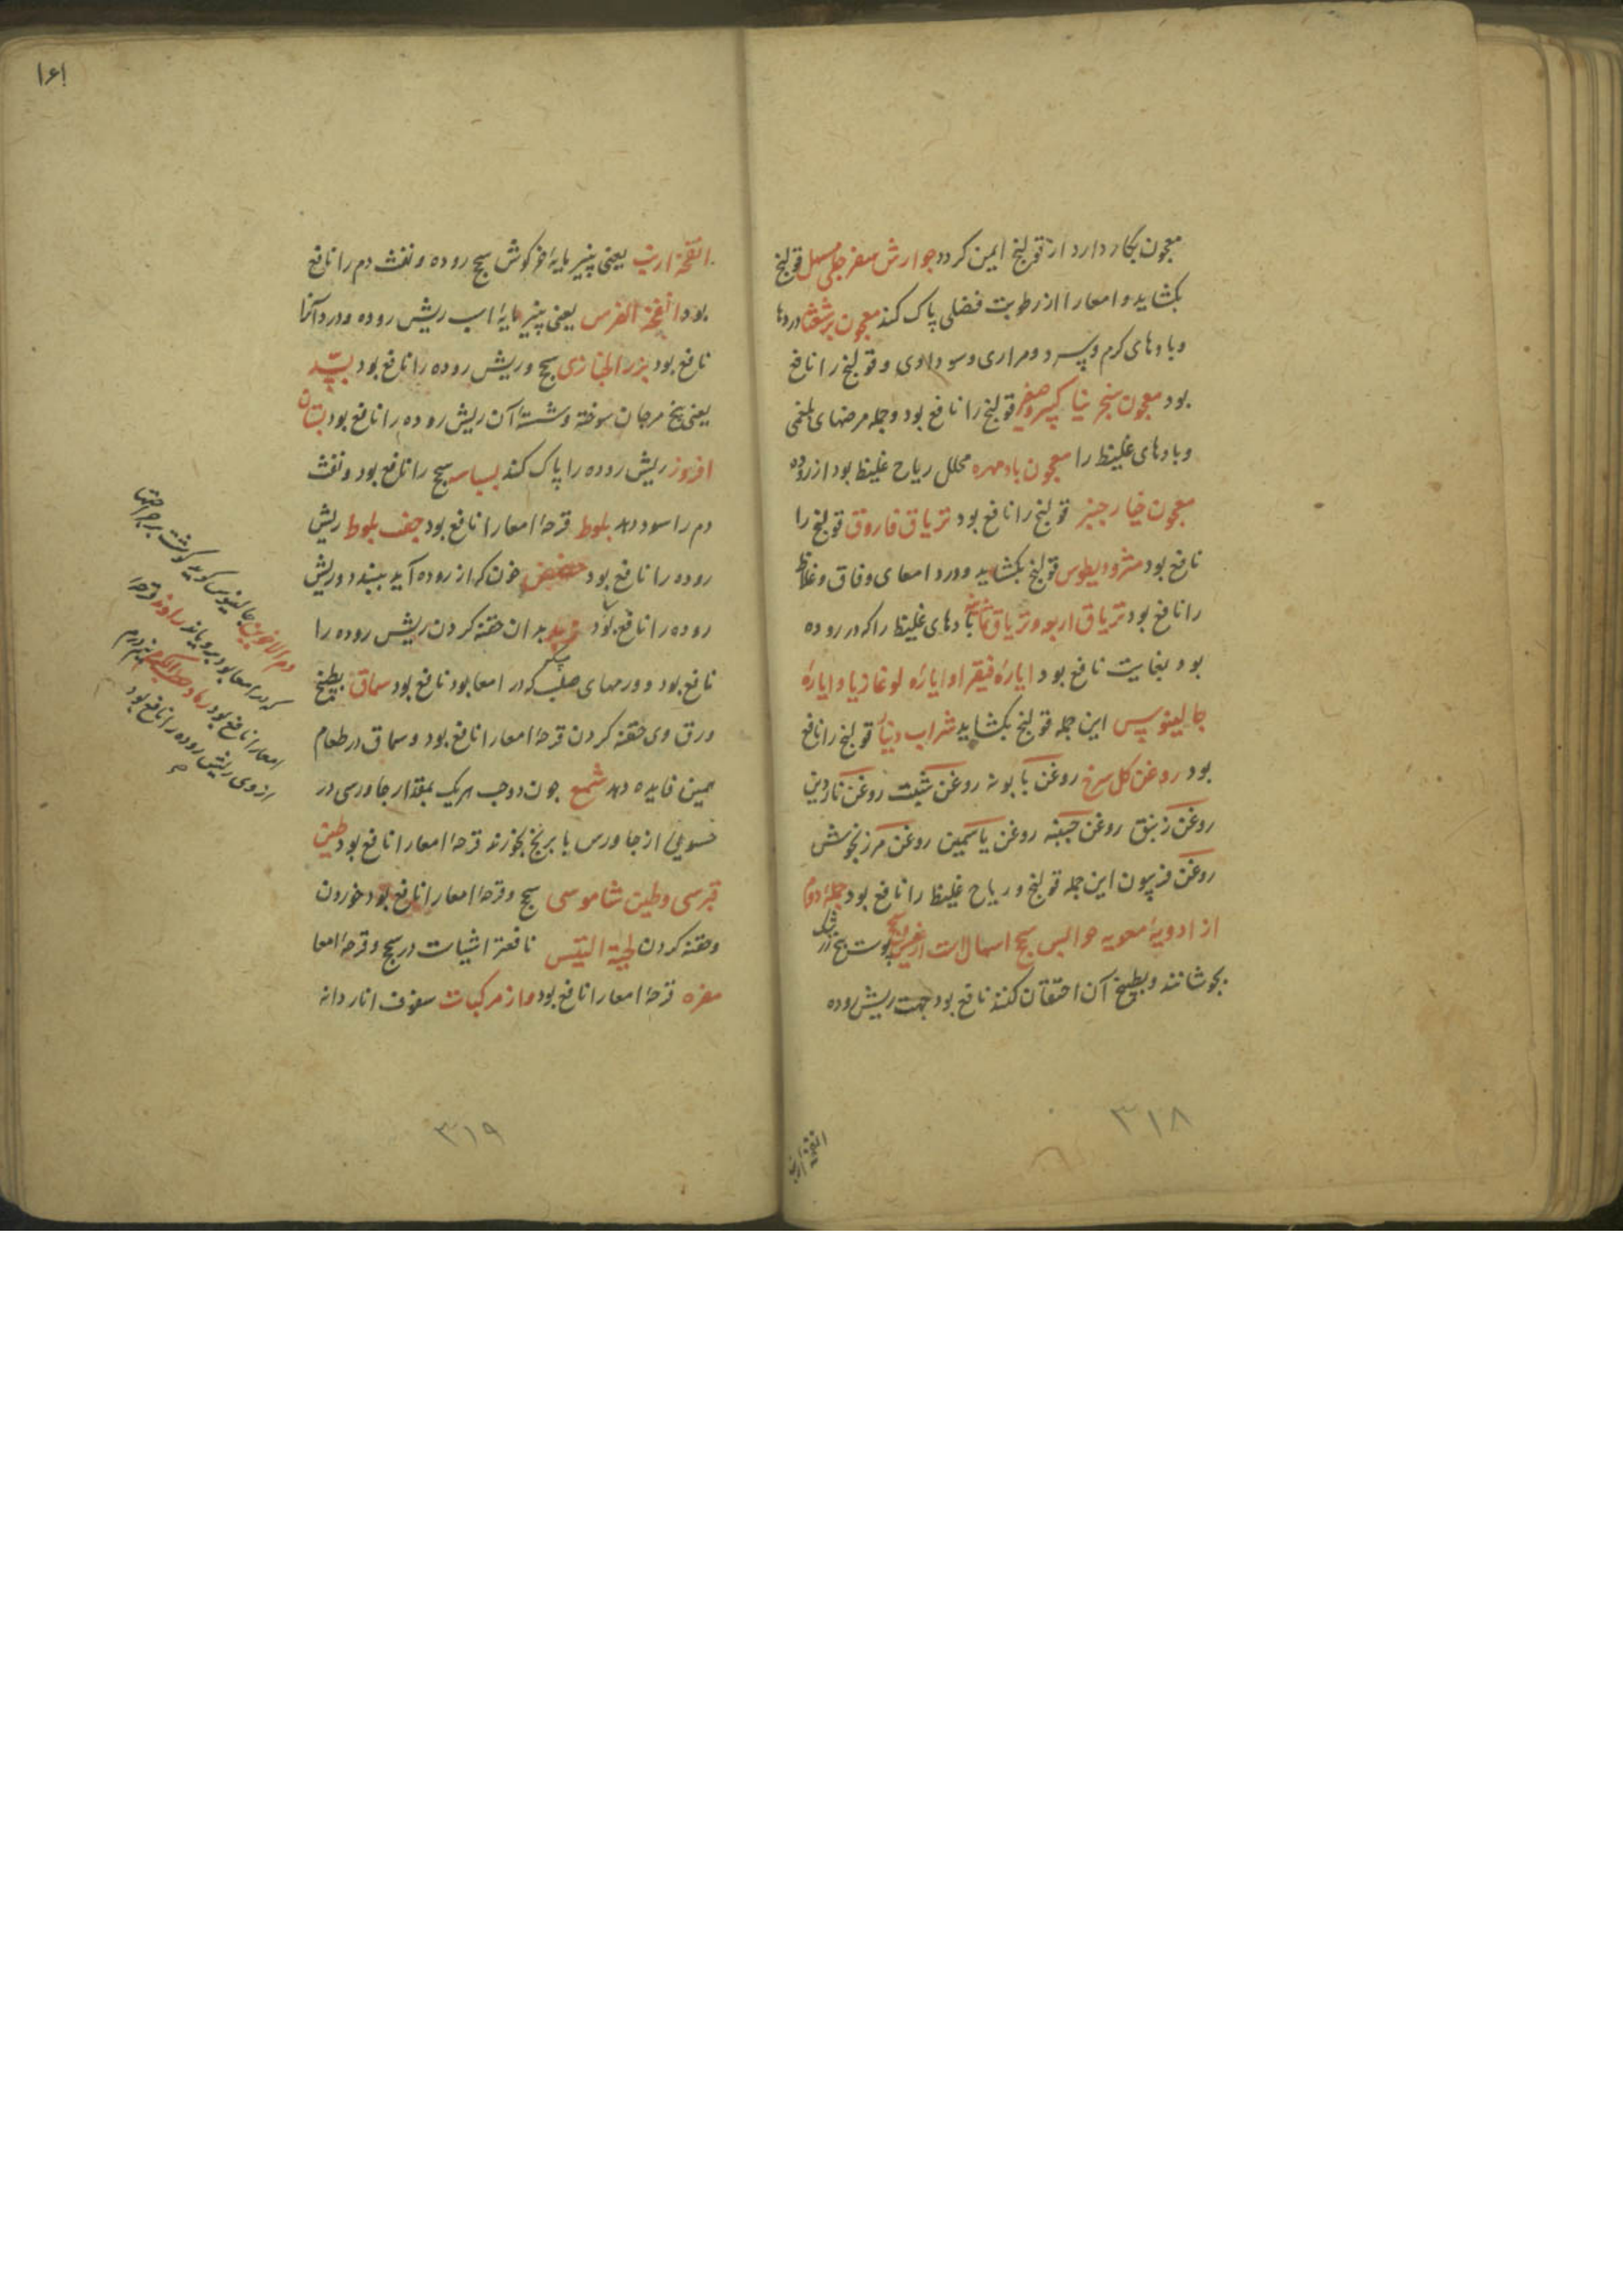 معجون بکار دارد از قولنج ایمن کردد جوارش سفرجلی مسهل قولنج
بکشاید و امعا را از رطوبت فضلی پاک کند معجون برشعثا دردها
و بادهای کرم و سرد و مراری و سوداوی و قولنج را نافع
بود معجون سنجرنیا کبیر و صغیر قولنج را نافع بود و جمله مرضهای بلغمی
و بادهای غلیظ را معجون بادمهره محلل ریاح غلیظ بود از روده
معجون خیارجنبر قولنج را نافع بود تریاق فاروق قولنج را
نافع بود مثرودیطوس قولنج بکشاید و درد امعای دقاق و غلاظ
را نافع بود تریاق اربعه و تریاق ثمانیه بادهای غلیظ را که در روده
بود بغایت نافع بود ایاره فیقرا و ایاره لوغاذیا و ایاره
جالینوس این جمله قولنج بکشاید شراب دینا قولنج را نافع
بود روغن کل سرخ روغن بابونه روغن شبت روغن ناردین
روغن زنبق روغن حسنه روغن یاسمین روغن مرزنجوش
روغن فرپیون این جمله قولنج و ریاح غلیظ را نافع بود جمله دوم
از ادویه معویه حوابس سحج اسهالات از غیر سحج پوست بیخ
بجوشانند و بطبیخ آن احتقان کنند نافع بود جهت ریش روده
انفحه ارنب
۳۱۸
۱۶۱
انفحه ارنب یعنی پنیر مایه خرکوش سحج روده و نفث دم را نافع
بود انفحه الفرس یعنی پنیر مایه اسب ریش روده و درد آنرا
نافع بود بزر الخبازی سحج و ریش روده را نافع بود بسد
یعنی بیخ مرجان سوخته و شسته آن ریش روده را نافع بود بستان
افروز ریش روده را پاک کند بسباسه سحج را نافع بود و نفث
دم را سود دهد بلوط قرحه امعا را نافع بود جفت بلوط ریش
روده را نافع بود حضض خون که از روده آید ببندد و ریش
روده را نافع بود زبد بدان حقنه کردن ریش روده را
نافع بود و ورمهای صلب که در امعا بود نافع بود سماق بطبیخ
ورق وی حقنه کردن قرحه امعا را نافع بود و سماق در طعام
همین فایده دهد شمع جون ده حب هریک بمقدار جاورسی در
حسوی از جاورس یا برنج بخورند قرحه امعا را نافع بود طین
قبرسی و طین شاموسی سحج و قرحه امعا را نافع بود خوردن
و حقنه کردن لحیة التیس نافعتر اشیات در سحج و قرحه امعا
مغره قرحه امعا را نافع بود و از مرکبات سفوف انار دانه
دم الاخوین جالینوس کوید کوشت بر جراحتها
که در امعا بود برویاند راوند قرحه
امعا را نافع بود رماد
از وی ریش روده را نافع بود
۳۱۹